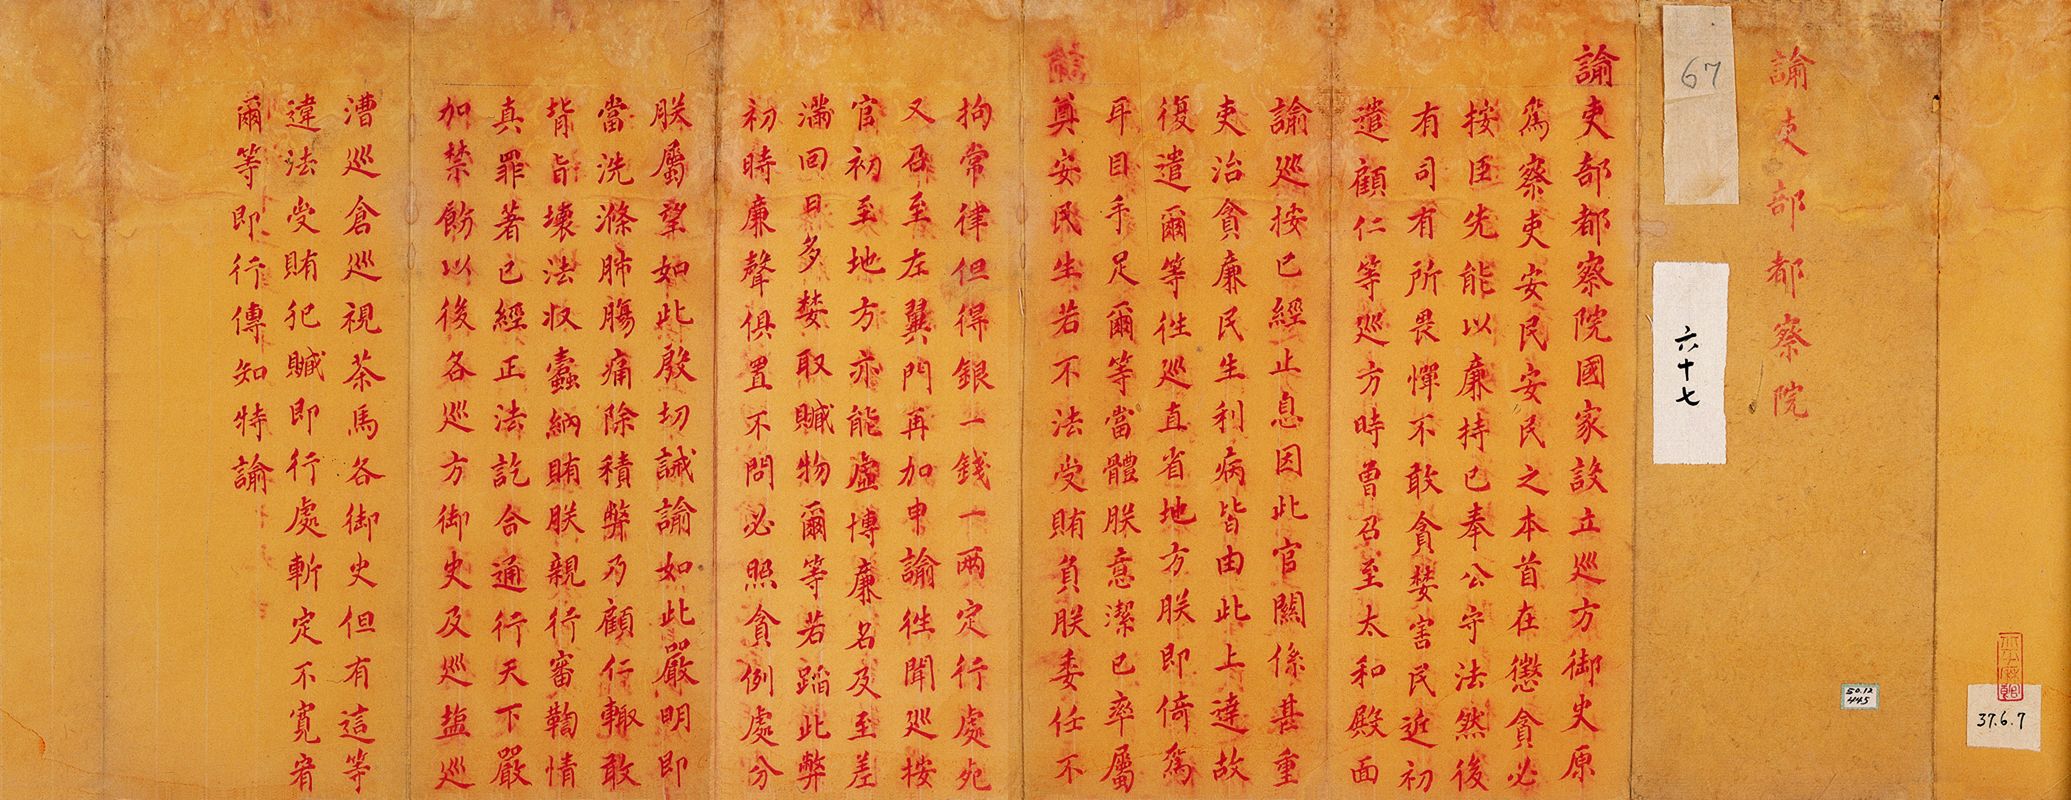 諭吏部都察院
67
六十七
50.12
445
37.6.7
諭吏部都察院國家設立巡方御史原
爲察吏安民安民之本首在懲貪必
按臣先能以廉持已奉公守法然後
有司有所畏憚不敢貪婪害民近初
遣顧仁等巡方時曾召至太和殿面
諭巡按已經止息因此官關係甚重
吏治貪廉民生利病皆由此上達故
復遣爾等徃巡直省地方朕即倚爲
耳目手足爾等當體朕意潔已率屬
奠安民生若不法受賄負朕委任不
拘常律但得銀一錢一兩定行處死
又召至左翼門再加申諭徃聞巡按
官初至地方亦能虛博廉名及至差
滿回日多婪取贓物爾等若蹈此弊
初時廉聲俱置不問必照貪例處分
朕屬望如此殷切誡諭如此嚴明即
當洗滌肺腸痛除積弊乃顧仁輙敢
背旨壞法収蠹納賄朕親行審鞫情
真罪著已經正法訖合通行天下嚴
加禁飭以後各巡方御史及巡盐巡
漕巡倉巡視茶馬各御史但有這等
違法受賄犯贓即行處斬定不寛宥
爾等即行傳知特諭